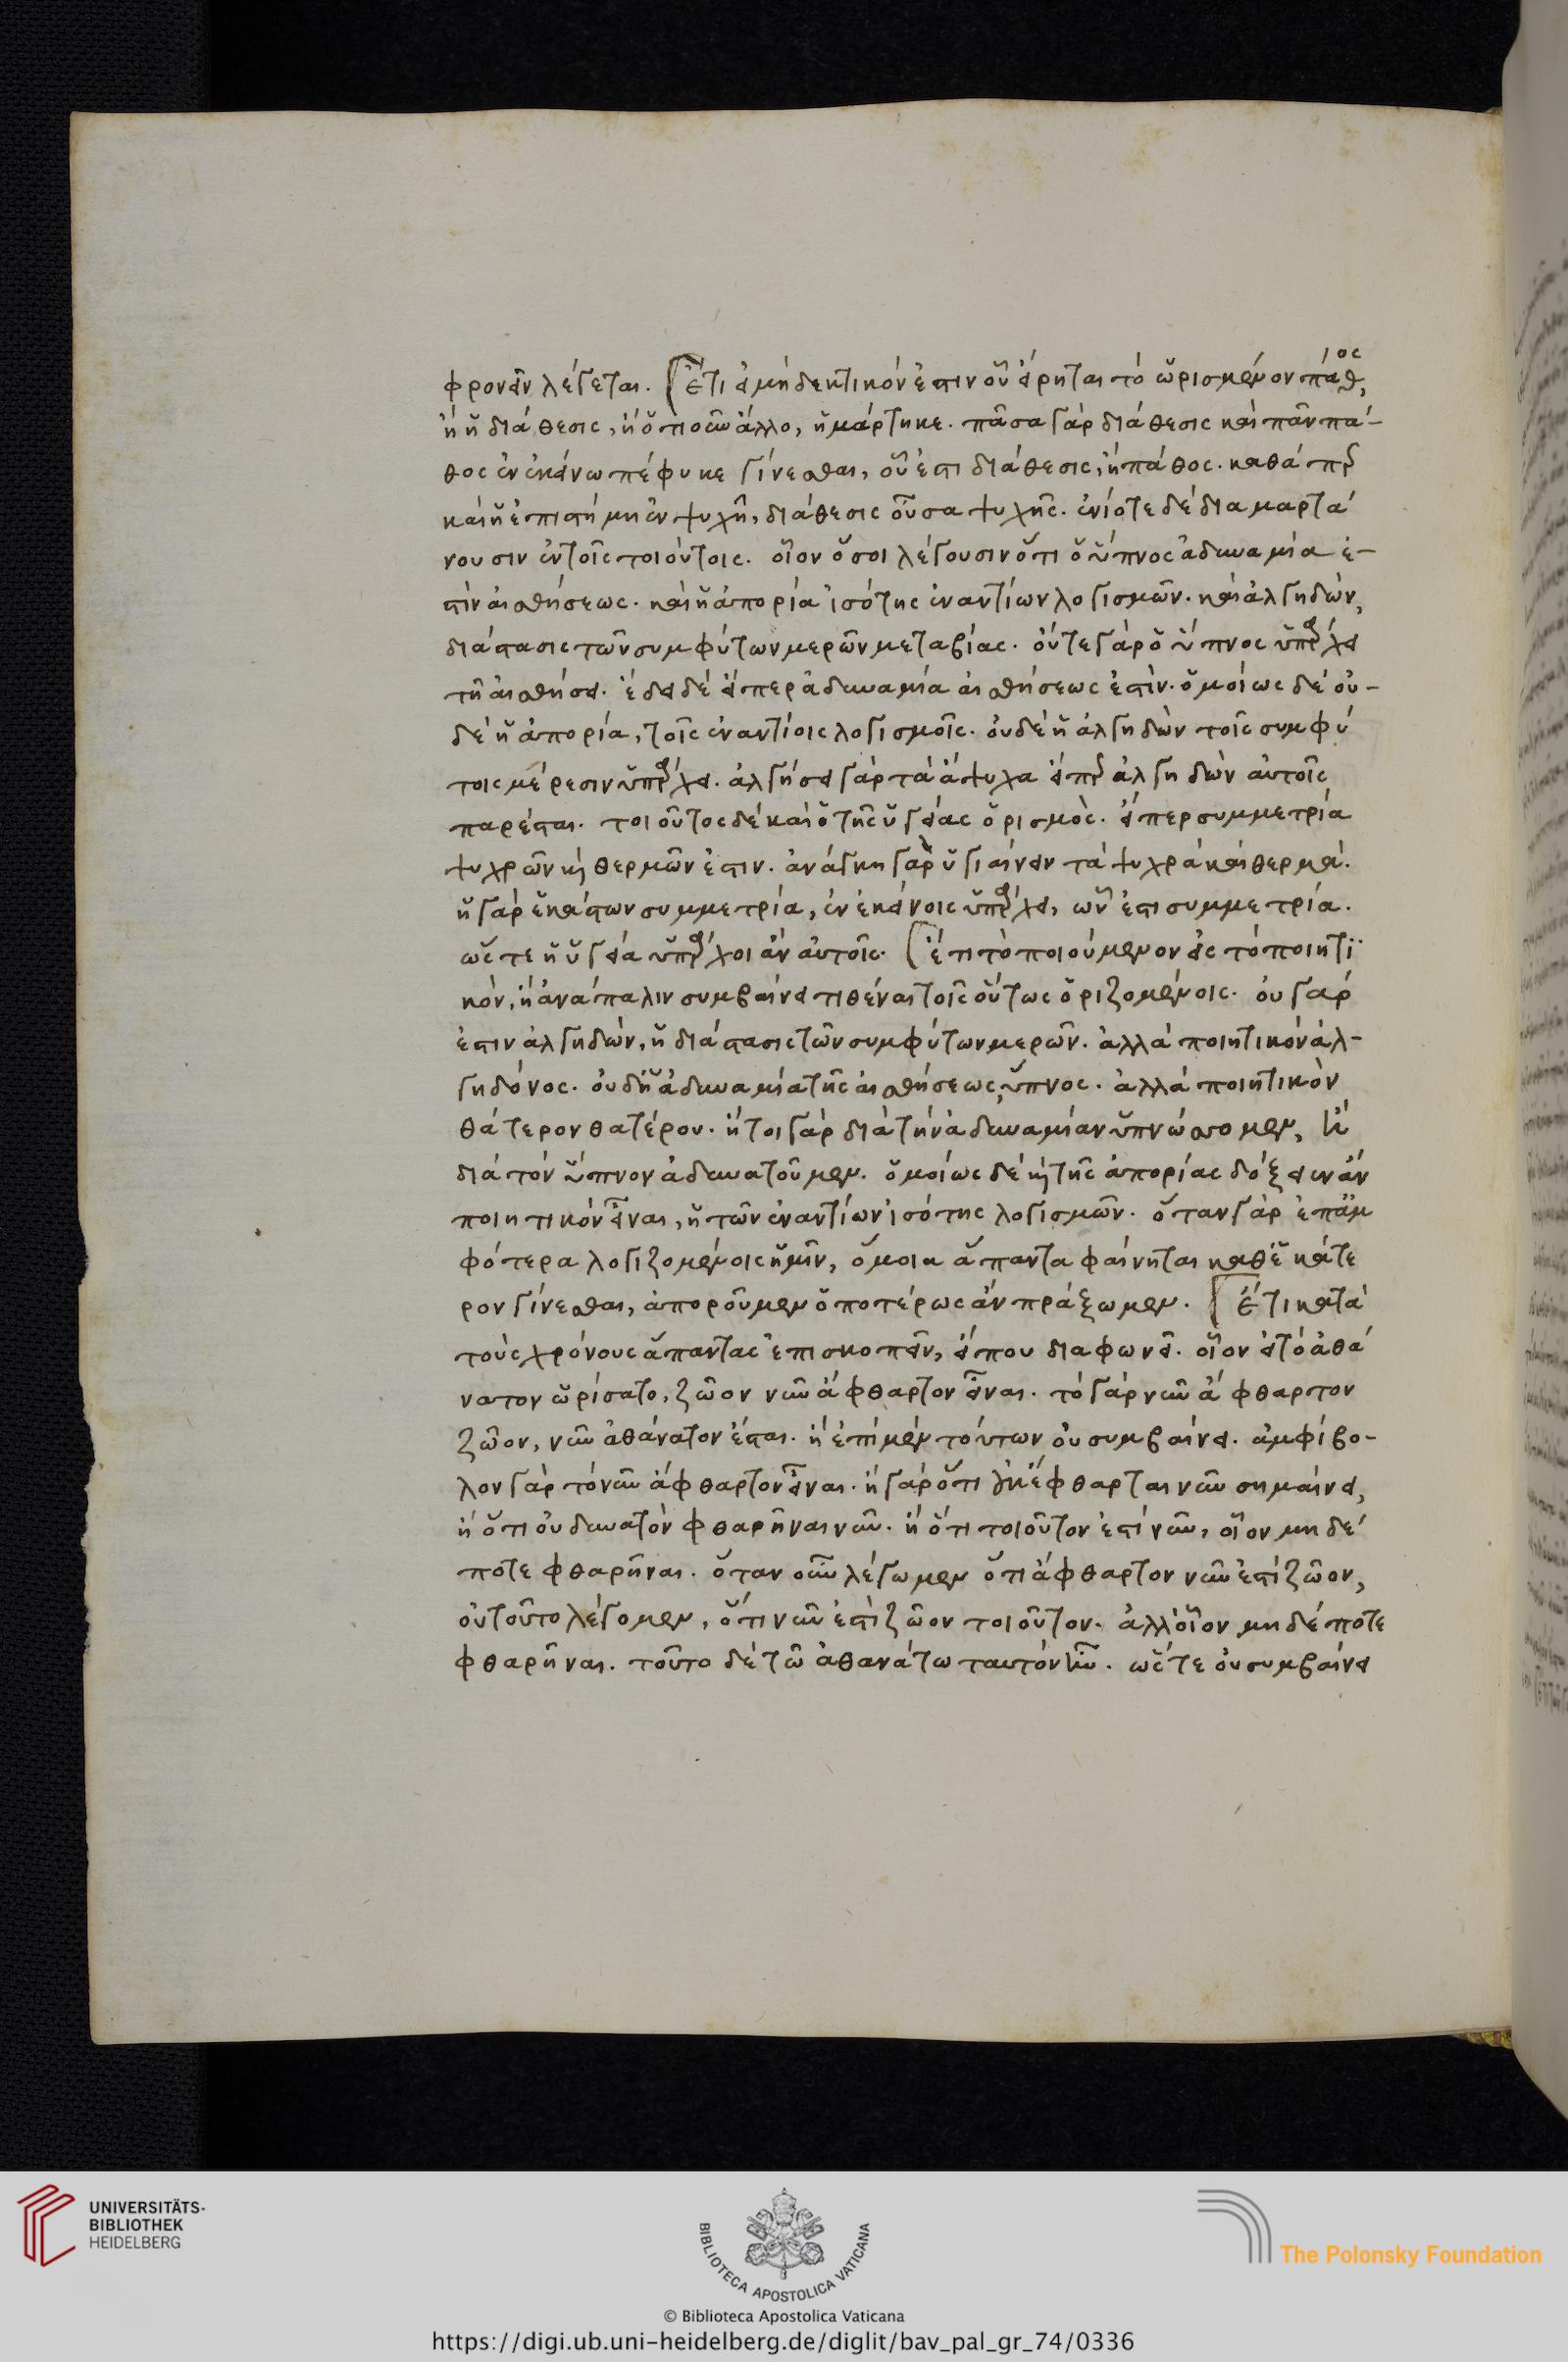 φρονεῖν λέγεται. Ἔτι εἰ μὴ δεκτικόν ἐστιν οὗ εἴρηται τὸ ὡρισμένον πάθος,
ἢ ἡ διάθεσις, ἢ ὁτιοῦν ἄλλο, ἡμάρτηκε. πᾶσα γὰρ διάθεσις καὶ πᾶν πά-
θος ἐν ἐκείνω πέφυκε γίνεσθαι, οὗ ἐστι διάθεσις, ἢ πάθος. καθάπερ
καὶ ἡ ἐπιστήμη ἐν ψυχῆ, διάθεσις οὖσα ψυχῆς. ἐνίοτε δὲ διαμαρτά
νουσιν ἐν τοῖς τοιούτοις. οἷον ὅσοι λέγουσιν ὅτι ὁ ὕπνος ἀδυναμία ἐ-
στὶν αἰσθήσεως. καὶ ἡ ἀπορία ἰσότης ἐναντίων λογισμῶν. καὶ ἀλγηδών,
διάστασις τῶν συμφύτων μερῶν μετα βίας. οὔτε γὰρ ὁ ὕπνος ὑπάρχει
τῆ αἰσθήσει. ἔδει δὲ εἴπερ ἀδυναμία αἰσθήσεως ἐστίν. ὁμοίως δὲ οὐ-
δὲ ἡ ἀπορία, τοῖς ἐναντίοις λογισμοῖς. οὐδὲ ἡ ἀλγηδὼν τοῖς συμφύ
τοις μέρεσιν ὑπάρχει. ἀλγήσει γὰρ τὰ ἄψυχα εἴπερ ἀλγηδὼν αὐτοῖς
παρέσται. τοιοῦτος δὲ καὶ ὁ τῆς ὑγείας ὁρισμὸς. εἴπερ συμμετρία
ψυχρῶν καὶ θερμῶν ἐστιν. ἀνάγκη γὰρ ὑγιαίνειν τὰ ψυχρὰ καὶ θερμά.
ἡ γὰρ ἑκάστων συμμετρία, ἐν ἐκείνοις ὑπάρχει, ὧν ἐστι συμμετρία.
ὥστε ἡ ὑγεία ὑπάρχοι ἂν αὐτοῖς. ἔτι τὸ ποιούμενον εἰς τὸ ποιητι
κὸν, ἢ ἀνάπαλιν συμβαίνει τιθέναι τοῖς οὕτως ὁριζομένοις. οὐ γάρ
ἐστιν ἀλγηδὼν, ἡ διάστασις τῶν συμφύτων μερῶν. ἀλλὰ ποιητικὸν ἀλ-
γηδόνος. οὐδ' ἡ ἀδυναμία τῆς αἰσθήσεως, ὕπνος. ἀλλὰ ποιητικὸν
θάτερον θατέρου. ἤτοι γὰρ διὰ τὴν ἀδυναμίαν ὑπνώσσομεν, ἢ
διὰ τὸν ὕπνον ἀδυνατοῦμεν. ὁμοίως δὲ καὶ τῆς ἀπορίας δόξειεν ἂν
ποιητικὸν εἶναι, ἡ τῶν ἐναντίων ἰσότης λογισμῶν. ὅταν γὰρ ἐπ' ἄμ
φότερα λογιζομένοις ἡμῖν, ὅμοια ἅπαντα φαίνηται καθ' ἑκάτε
ρον γίνεσθαι, ἀποροῦμεν ὁποτέρως ἂν πράξωμεν. Ἔτι κατὰ
τοὺς χρόνους ἅπαντας ἐπισκοπεῖν, εἴπου διαφωνεῖ. οἷον εἰ τὸ ἀθά
νατον ὡρίσατο, ζῶον νῦν ἄφθαρτον εἶναι. τὸ γὰρ νῦν ἄφθαρτον
ζῶον, νῦν ἀθάνατον ἔσται. ἢ ἐπὶ μὲν τούτων οὐ συμβαίνει. ἀμφίβο-
λον γὰρ τὸ νῦν ἄφθαρτον εἶναι. ἢ γὰρ ὅτι οὐκ ἔφθαρται νῦν σημαίνει,
ἢ ὅτι οὐ δυνατὸν φθαρῆναι νῦν. ἢ ὅτι τοιοῦτον ἐστὶ νῦν, οἷον μηδέ
ποτε φθαρῆναι. ὅταν οὖν λέγωμεν ὅτι ἄφθαρτον νῦν ἐστὶ ζῶον,
οὐ τοῦτο λέγομεν, ὅτι νῦν ἐστὶ ζῶον τοιοῦτον. ἀλλ' οἷον μηδέποτε
φθαρῆναι. τοῦτο δὲ τῶ ἀθανάτω ταυτὸν ἦν. ὥστε οὐ συμβαίνει
UNIVERSITÄTS-
BIBLIOTHEK
HEIDELBERG
BIBLIOTECA APOSTOLICA VATICANA
The Polonsky Foundation
© Biblioteca Apostolica Vaticana
https://digi.ub.uni-heidelberg.de/diglit/bav_pal_gr_74/0336